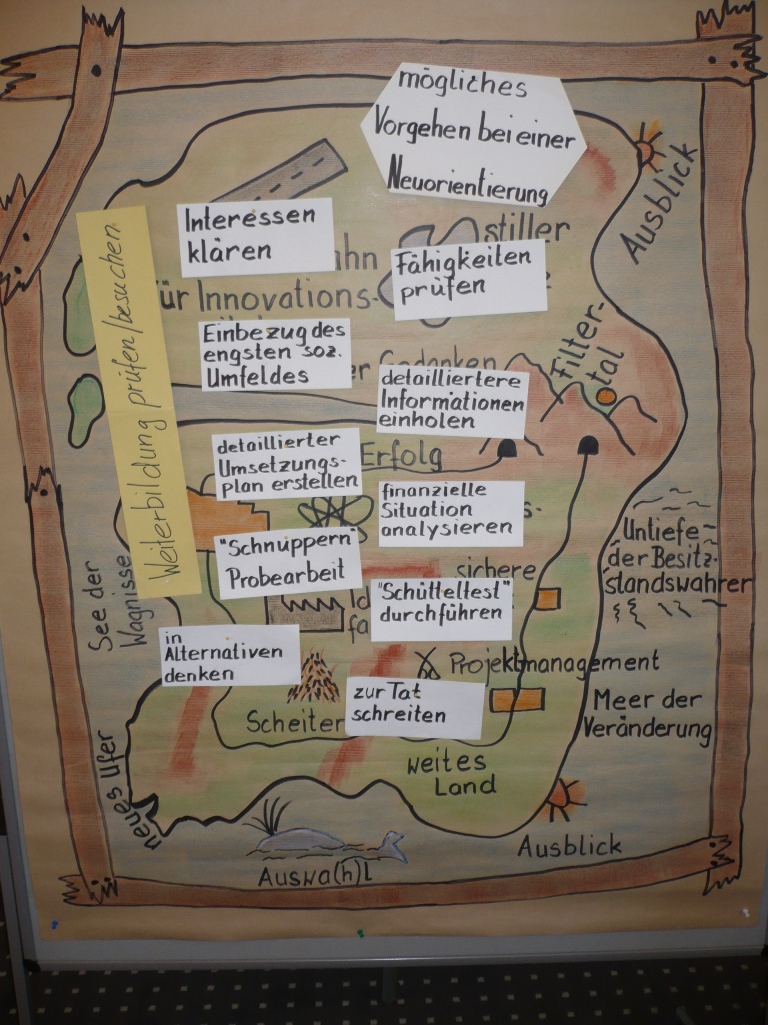 mögliches
Vorgehen bei einer
Neuorientierung
Ausblick
Interessen
klären
stiller
Fähigkeiten
prüfen
für Innovations-
Weiterbildung prüfen/besuchen
Einbezug des
engsten soz.
Umfeldes
Gedanken
Filter-
tal
detailliertere
Informationen
einholen
detaillierter
Umsetzungs-
plan erstellen
Erfolg
finanzielle
Situation
analysieren
"Schnuppern"
Probearbeit
sichere
"Schütteltest"
durchführen
Untiefe
der Besitz-
standswahrer
See der
Wagnisse
in
Alternativen
denken
Projektmanagement
zur Tat
schreiten
Scheiter
Meer der
Veränderung
weites
Land
neues Ufer
Ausblick
Auswa(h)l